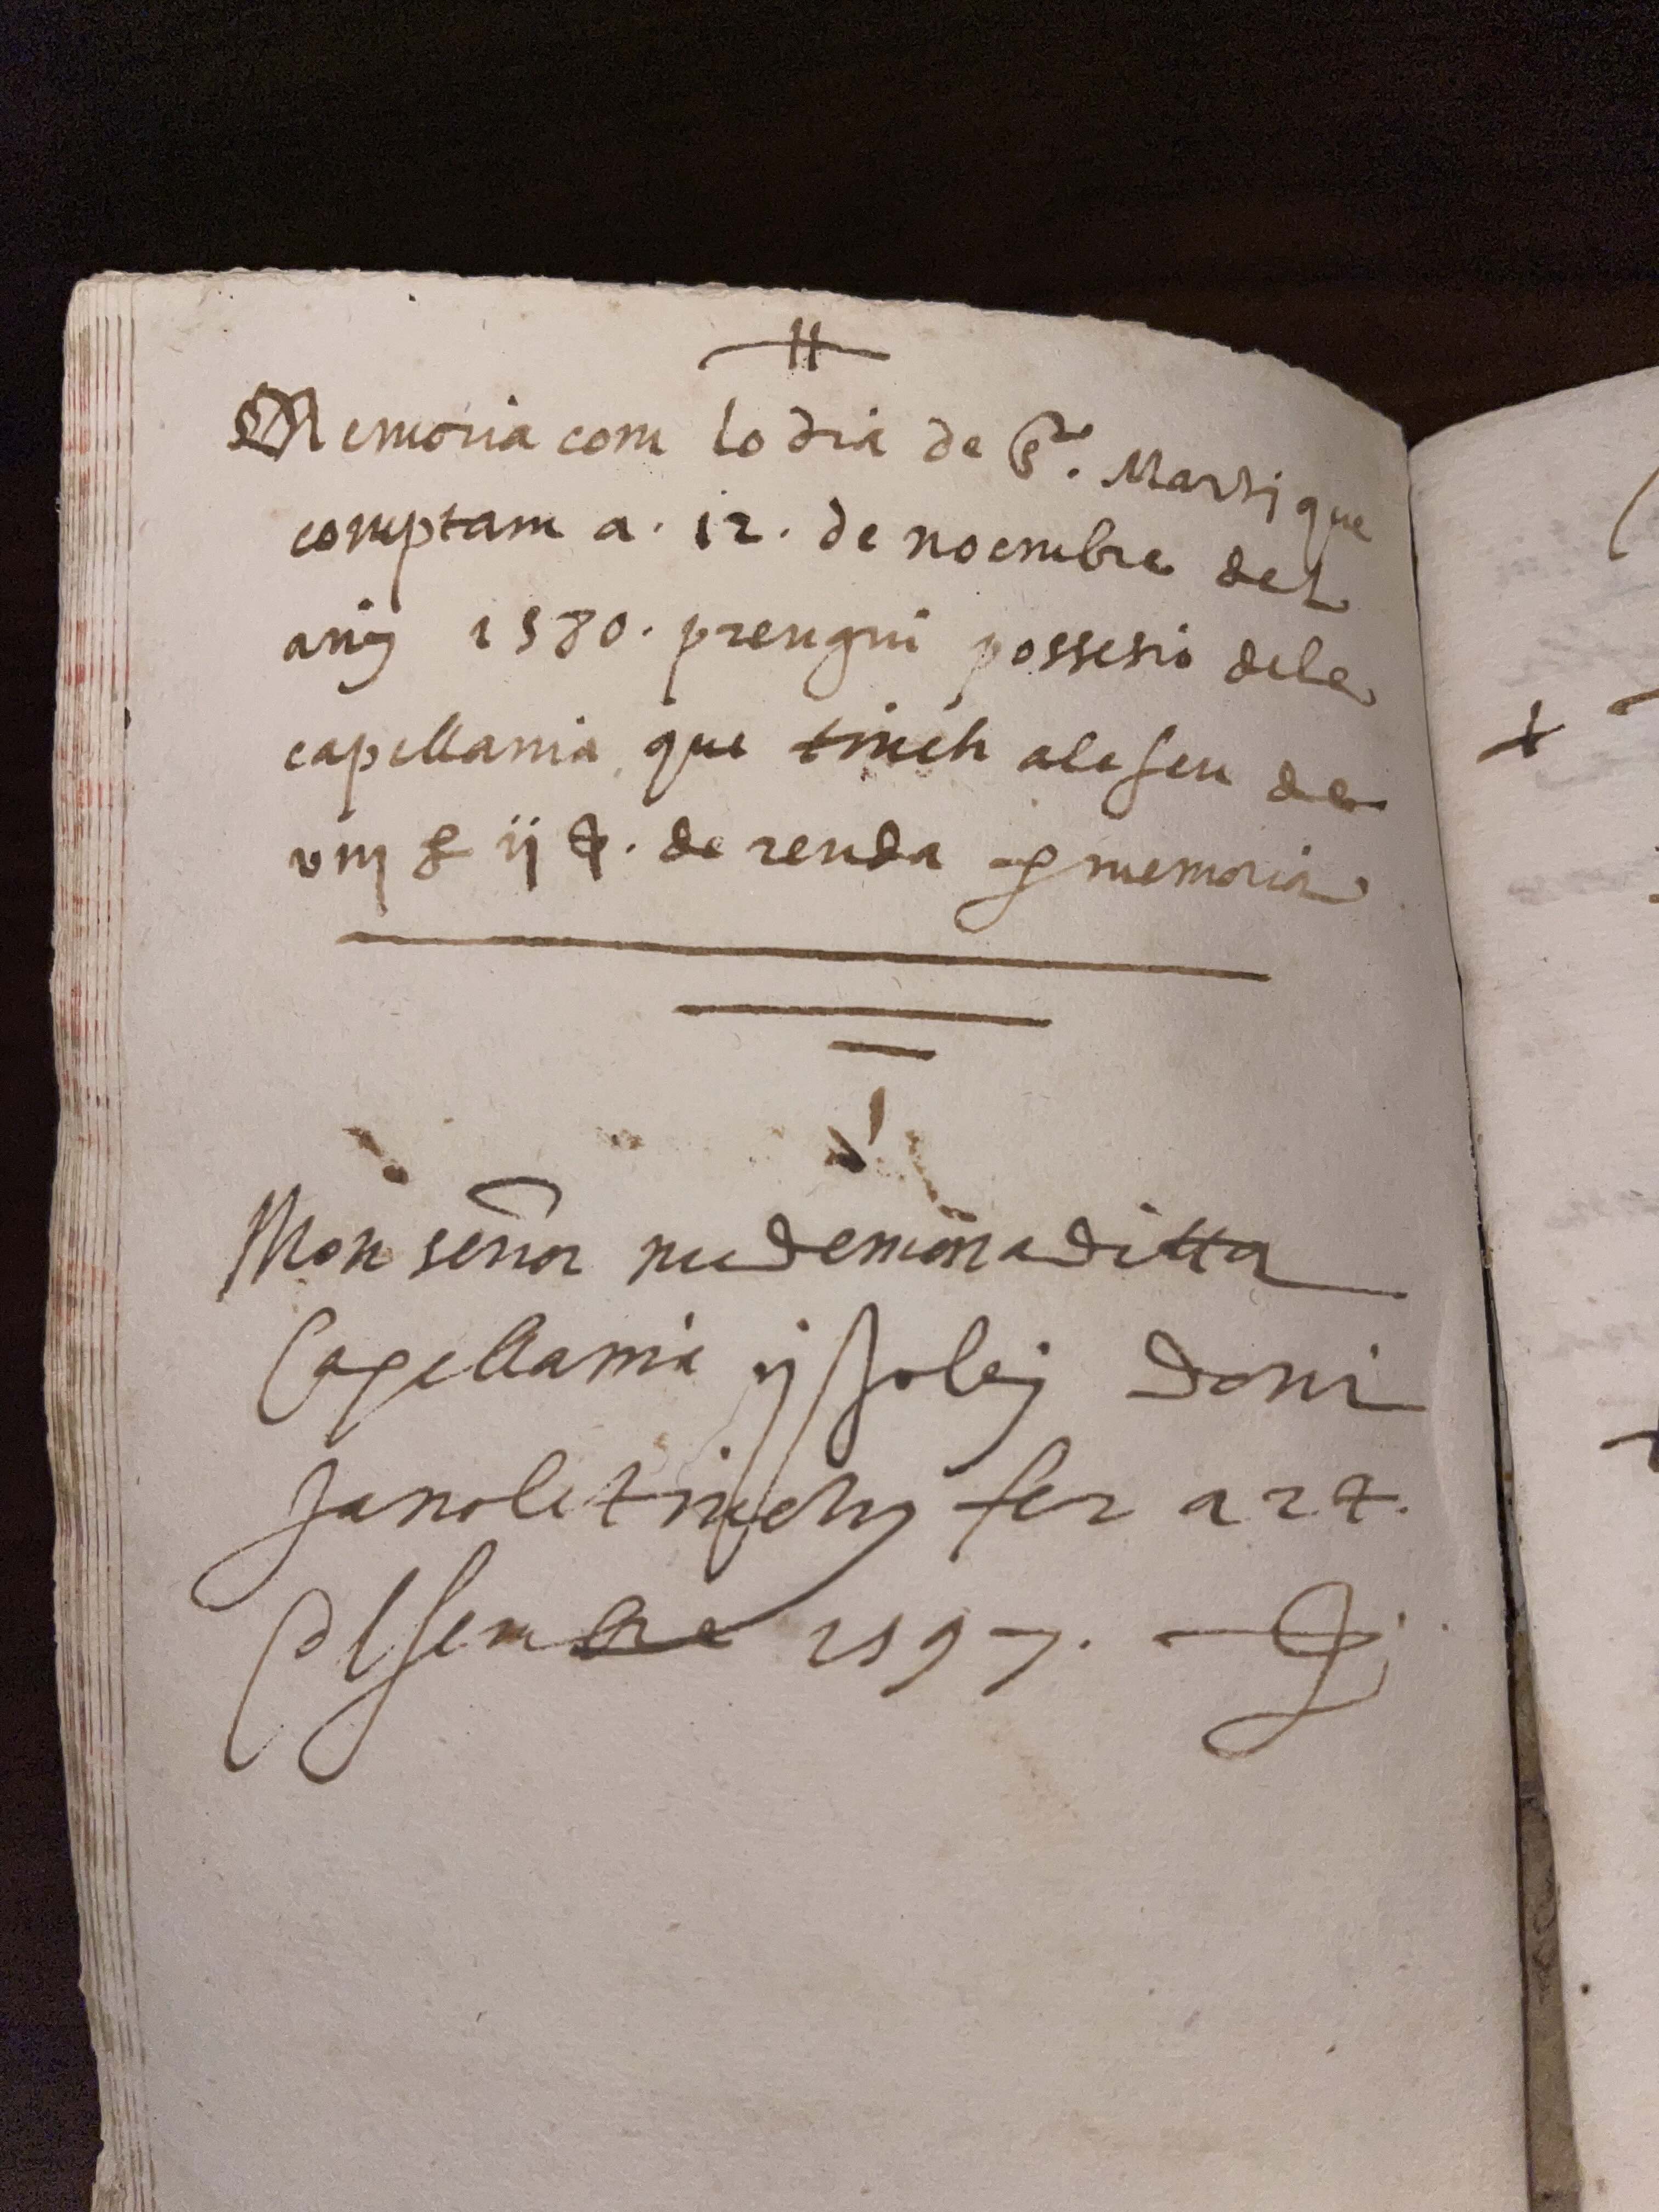 Memoria com lo dia de St. Marti que
comptam a. 12. de noembre del
any 1580. prengui possesio dela
capellania que tinch ala seu de
viiij £ ij s. de renda per memoria
Mon señor me demana ditta
Capellania y jo ley doni
ja nole tinch fer a 27.
1597.